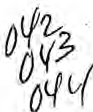 042
043
044